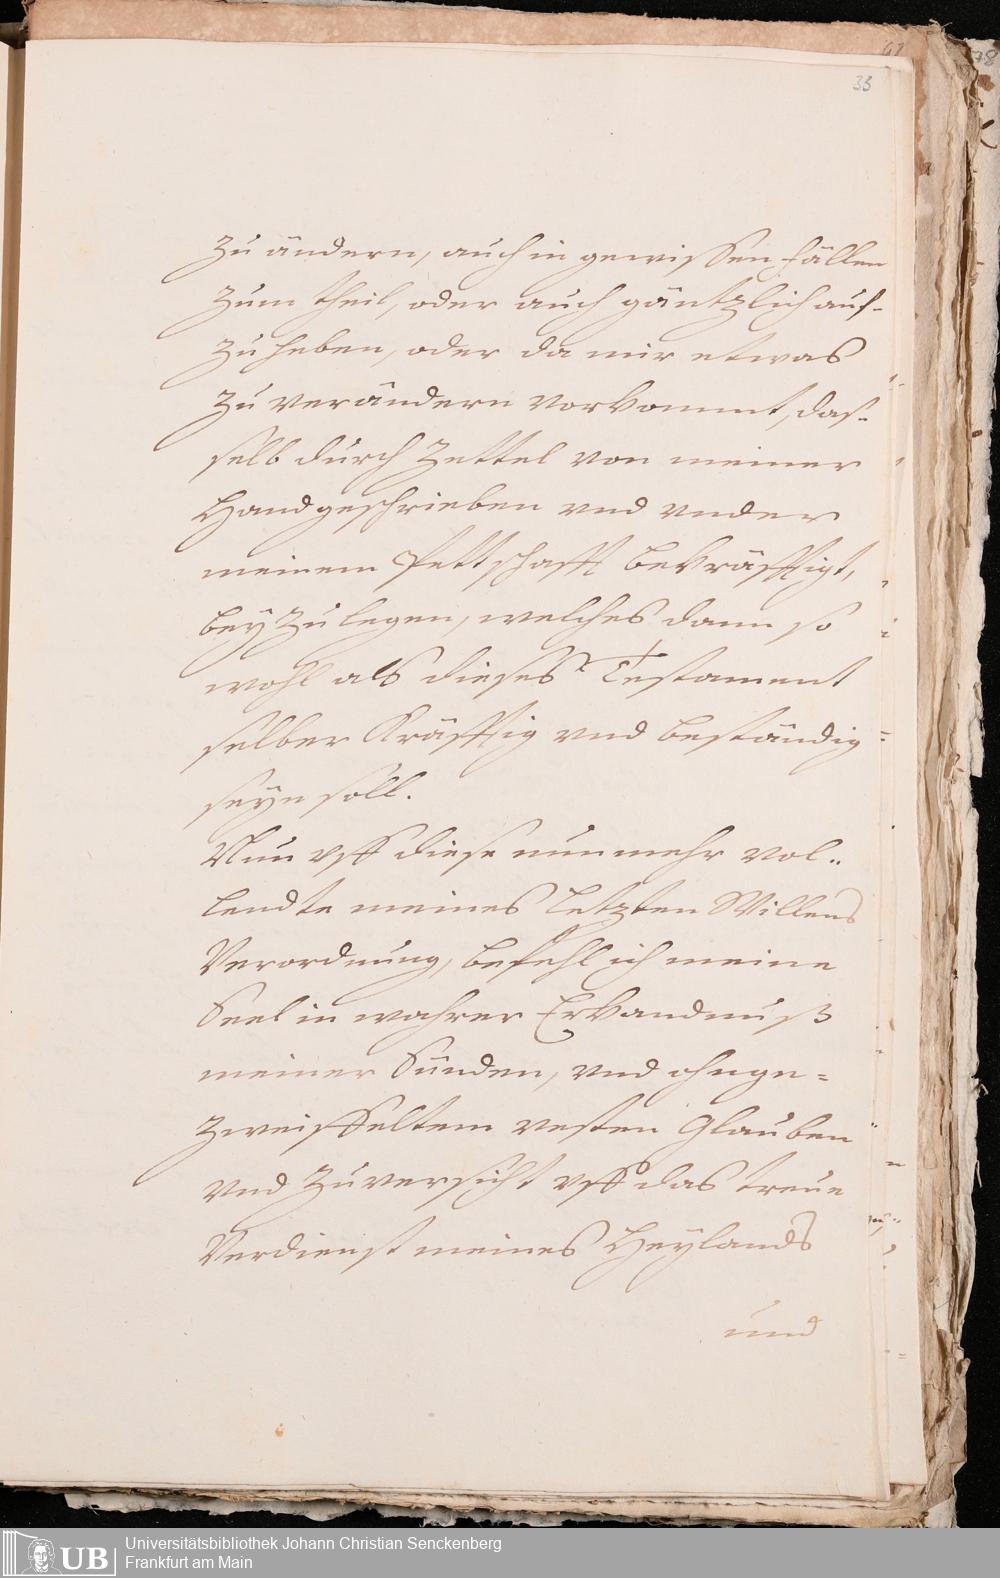 33
zu ändern, auch in gewissen fällen
zum theil, oder auch gäntzlich auf-
zuheben, oder da mir etwas
zu verändern vorkommt, das-
selb durch Zettel von meiner
Hand geschrieben vnd vnder
meinem Pettschafft bekräfftigt,
beyzulegen, welches dann so
wohl als dieses Testament
selber kräfftig vnd beständig
seyn soll.
Nun vff diese nunmehr vol-
lendte meines letzten Willens
Verordnung, befehl ich meine
Seel in wahrer Erkandnuß
meiner Sünden, vnd ohnge=
zweiffeltem vesten Glauben
vnd Zuversicht vff das treue
Verdienst meines Heylands
und
UB Universitätsbibliothek Johann Christian Senckenberg
Frankfurt am Main